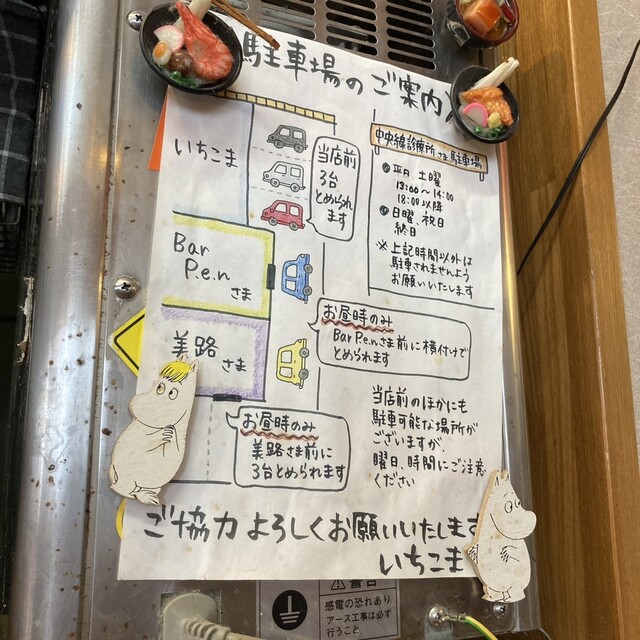 駐車場のご案内
いちこま
当店前
3台
とめられ
ます
中央線診療所さま駐車場
平日 土曜
13:00〜14:00
18:00以降
日曜、祝日
終日
※上記時間以外は
駐車されませんよう
お願いいたします
Bar
P.e.n
さま
お昼時のみ
Bar P.e.nさま前に横付けで
とめられます
美路
さま
お昼時のみ
美路さま前に
3台とめられます
当店前のほかにも
駐車可能な場所が
ございますが、
曜日、時間にご注意
ください
ご協力よろしくお願いいたします
いちこま
感電の恐れあり
アース工事は必ず
行うこと